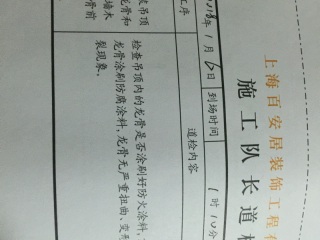 上海百安居装饰工程
施工队长道
018年1月6日 到场时间 1时10分
工序 道检内容
吊顶
龙骨和
墙木
骨前
检查吊顶内的龙骨是否涂刷好防火涂料，
龙骨涂刷防腐涂料，龙骨无严重扭曲、变
裂现象。